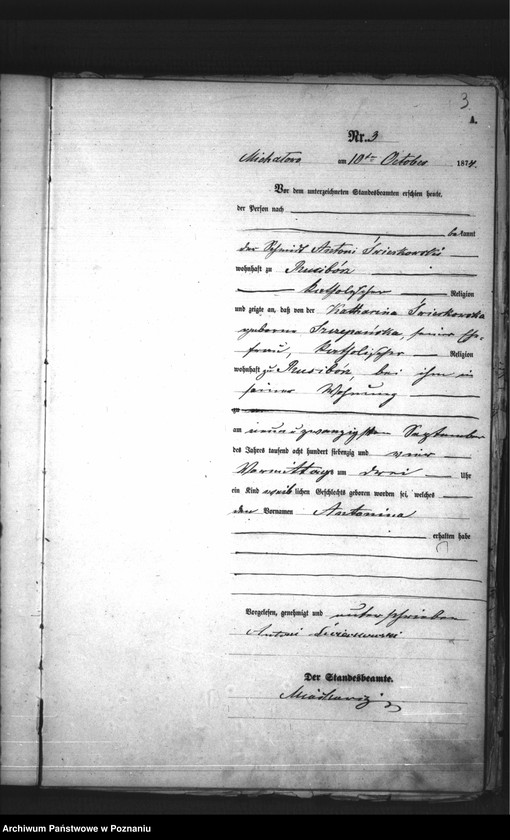 3
A.
Nr. 3
Michałowo am 10ten October 1874.
Vor dem unterzeichneten Standesbeamten erschien heute,
der Person nach
bekannt
der Schmidt Antoni Świerkowski
wohnhaft zu Rusibórz
katholischer Religion
und zeigte an, daß von der Katharina Świerkowska
geborene Szczepańska, seiner Ehe-
frau, katholischer Religion
wohnhaft zu Rusibórz, bei ihm in
seiner Wohnung
zu
am neunundzwanzigsten September
des Jahres tausend acht hundert siebenzig und vier
Vormittags um drei Uhr
ein Kind weiblichen Geschlechts geboren worden sei, welches
den Vornamen Antonina
erhalten habe
Vorgelesen, genehmigt und unterschrieben
Antoni Świerkowski
Der Standesbeamte.
Archiwum Państwowe w Poznaniu